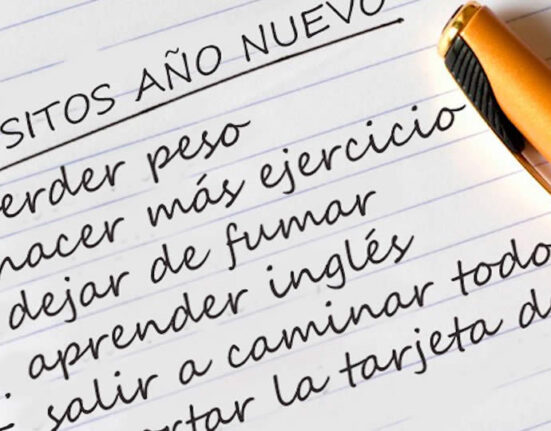 SITOS AÑO NUEVO
erder peso
hacer más ejercicio
dejar de fumar
aprender inglés
salir a caminar todo
rtar la tarjeta d